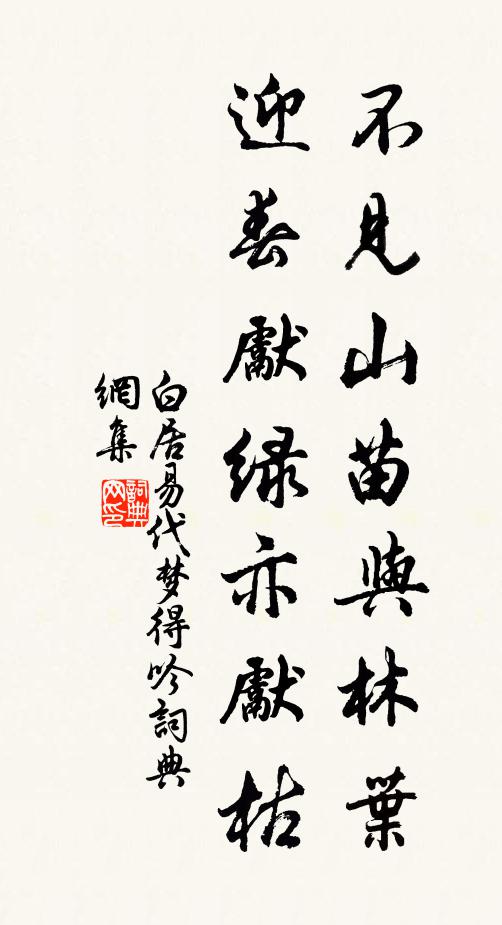 不見山苗與林葉
迎春獻綠亦獻枯
白居易代梦得吟詞典
網集
詞典網印